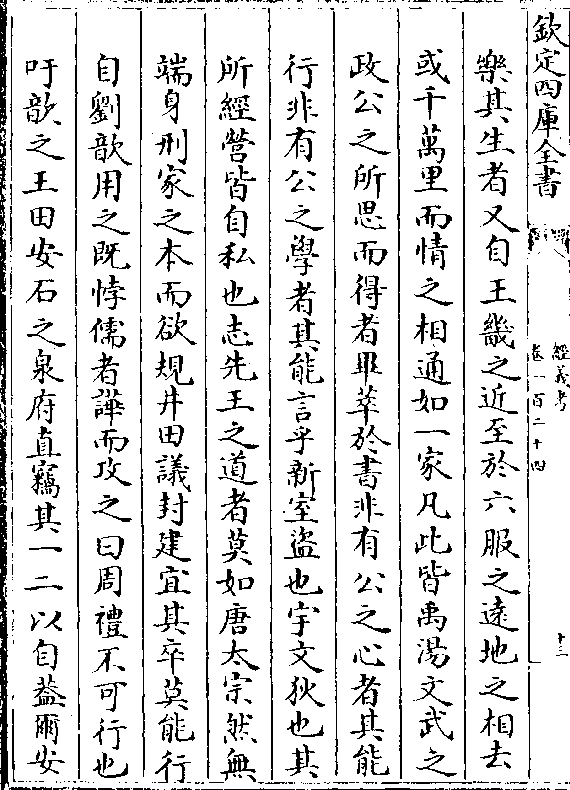 欽定四庫全書
經義考
卷一百二十四
十三
樂其生者又自王畿之近至於六服之遠地之相去
或千萬里而情之相通如一家凡此皆禹湯文武之
政公之所思而得者畢萃於書非有公之心者其能
行非有公之學者其能言乎新室盜也宇文狄也其
所經營皆自私也志先王之道者莫如唐太宗然無
端身刑家之本而欲規井田議封建宜其卒莫能行
自劉歆用之既悖儒者譁而攻之曰周禮不可行也
吁歆之王田安石之泉府直竊其一二以自葢爾安